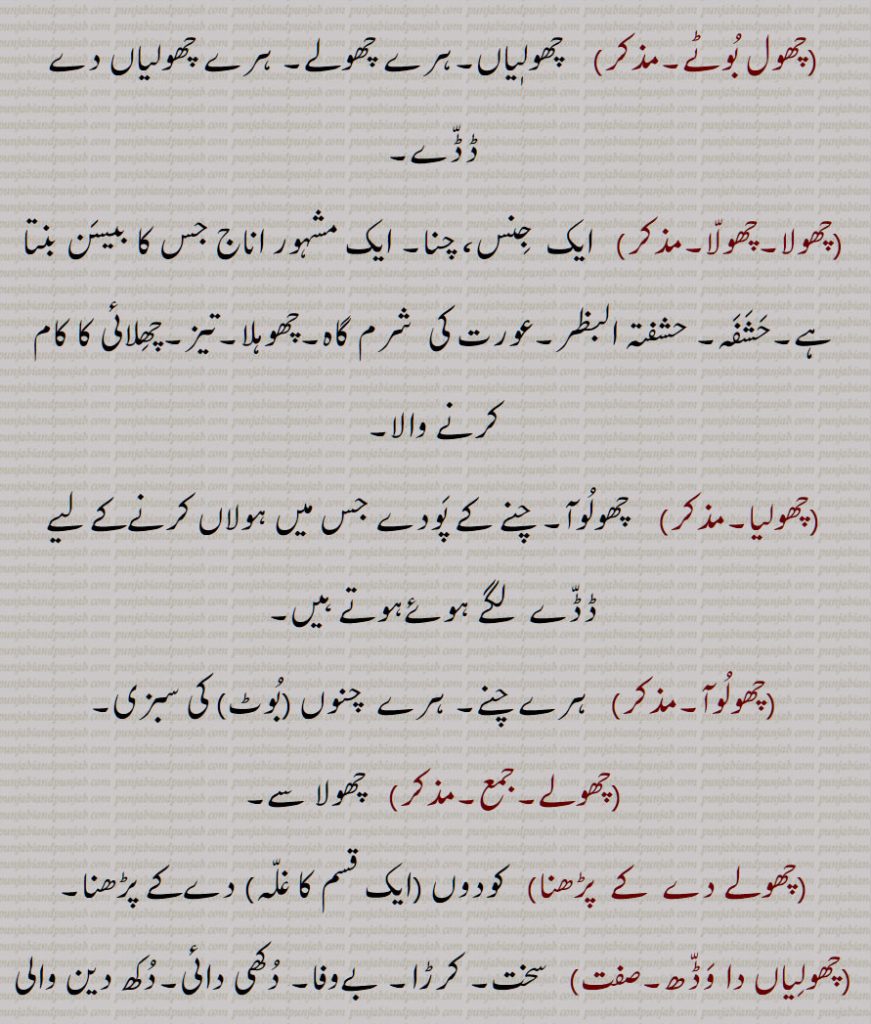 (چھول بُوٹے۔مذکر) چھولٖیاں۔ہرے چھولے۔ ہرے چھولیاں دے
ڈڈّے۔
(چھولا۔چھولّا۔مذکر) ایک جِنس، چنا۔ ایک مشہور اناج جس کا بیسَن بنتا
ہے۔حَشَفَہ۔ حشفتہ البظر۔عورت کی شرم گاہ۔چھوہلا۔تیز۔چھِلائی کا کام
کرنے والا۔
(چھولیا۔مذکر) چھولُوآ۔ چنے کے پَودے جس میں ہولاں کرنےکے لیے
ڈڈّے لگے ہوئےہوتے ہیں۔
(چھولُوآ۔مذکر) ہرے چنے۔ ہرے چنوں (بُوٹ) کی سبزی۔
(چھولے۔جمع۔مذکر) چھولا سے۔
(چھولے دے کے پڑھنا) کودوں (ایک قسم کا غلّہ) دےکے پڑھنا۔
(چھولِیاں دا وَڈّھ۔صفت) سخت۔ کرڑا۔ بےوفا۔ دُکھی دائی۔دُکھ دین والی